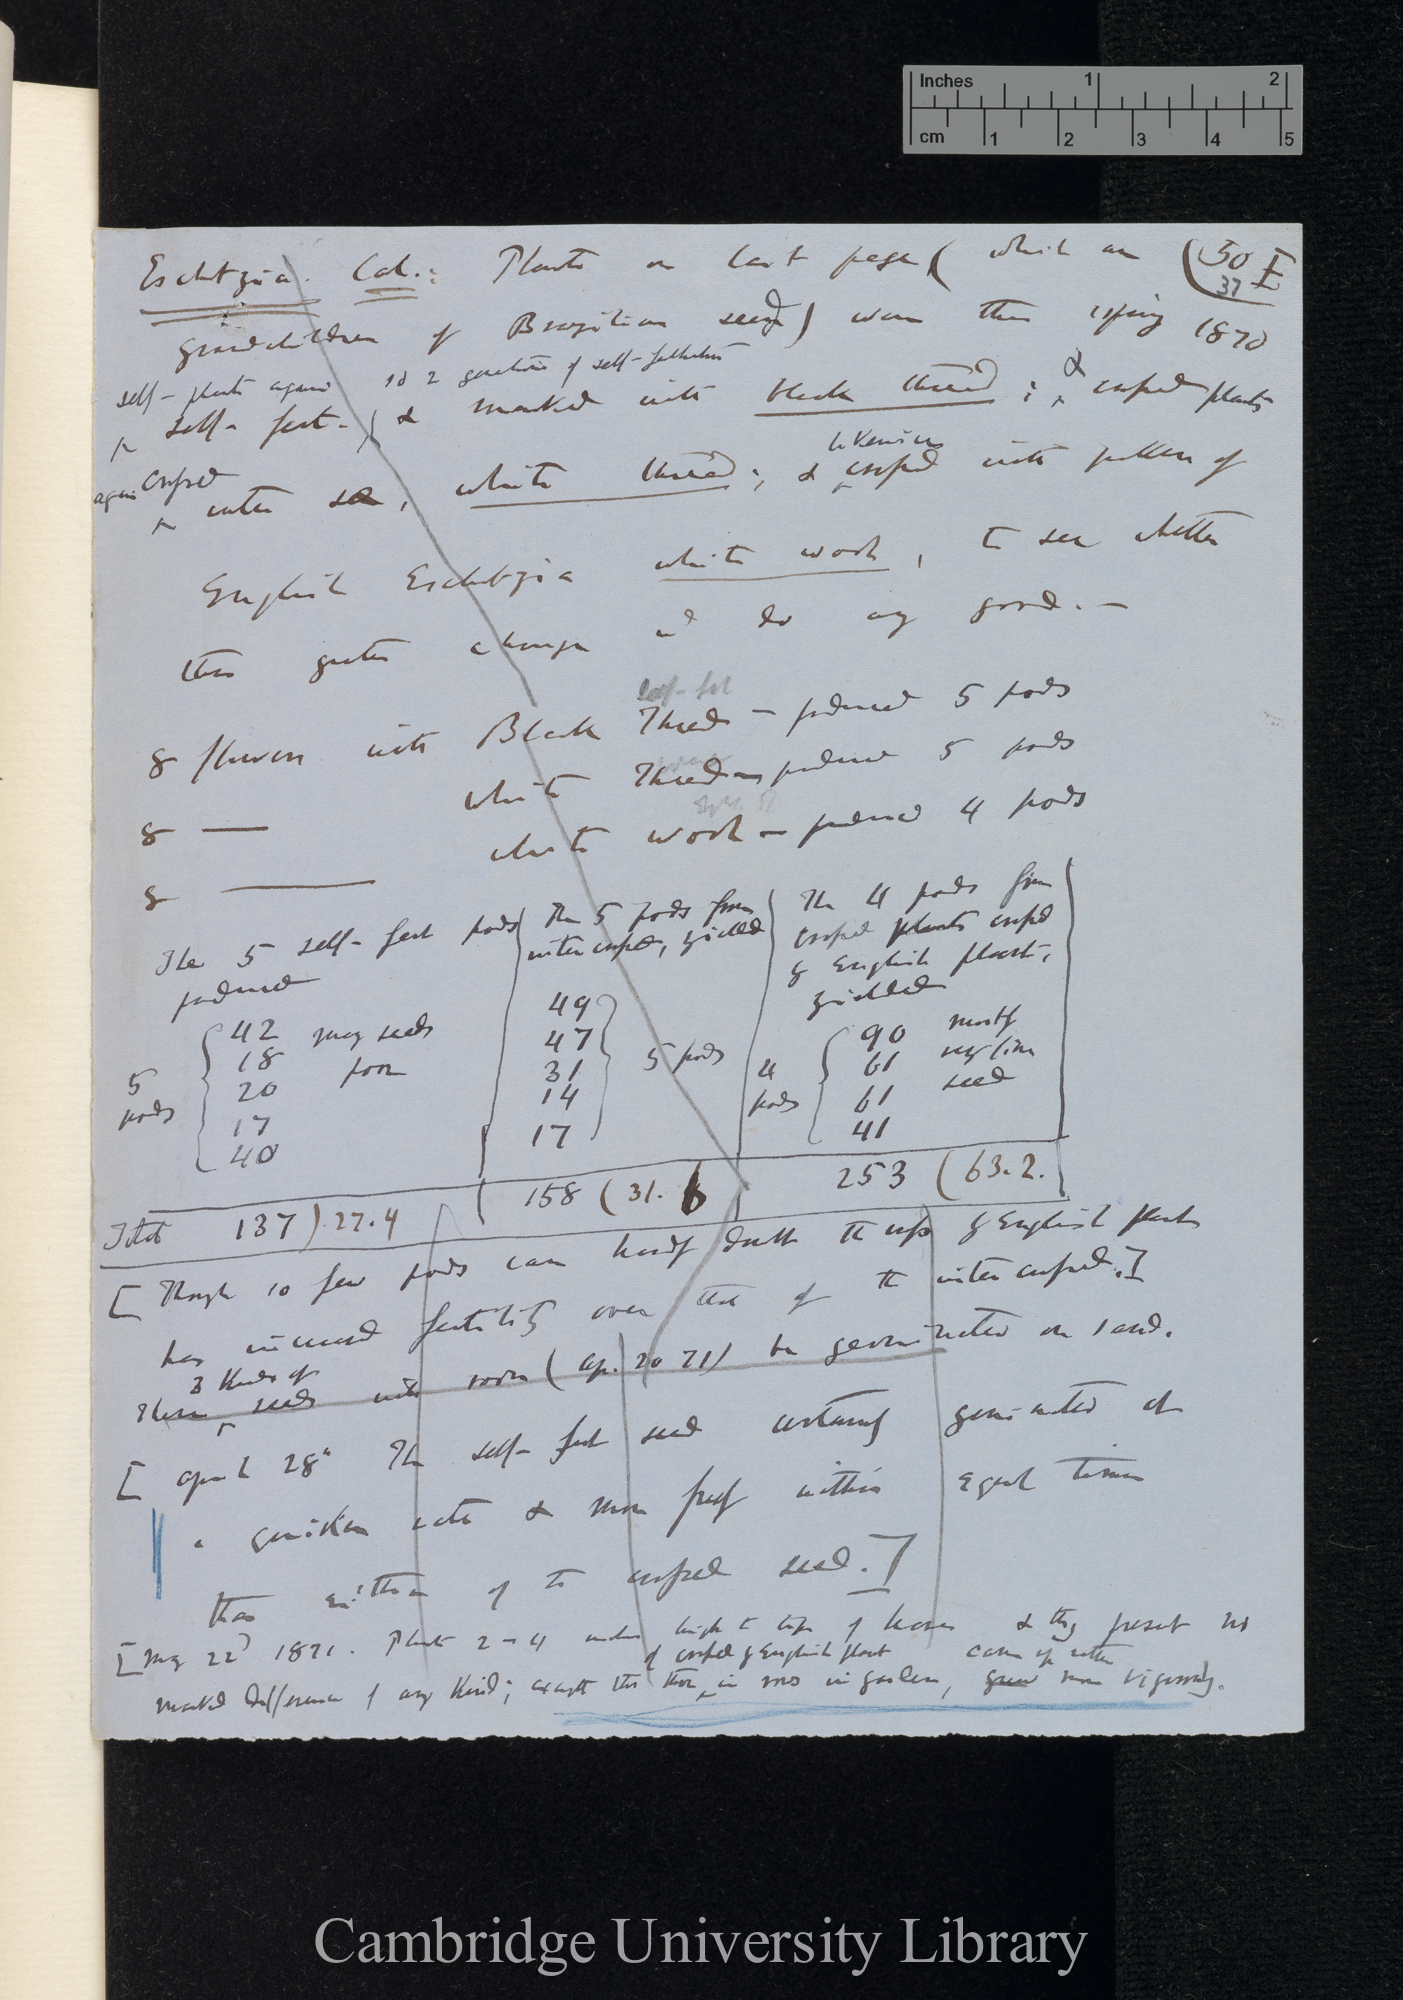 Inches 1 2
cm 1 2 3 4 5
Eschtzia. Cal.: Plants on last page ( which are (50 E
37
grandchildren of Brazilian seed) were this spring 1870
self-plants again so 2 generations of self-fertilisation
self-fert. & marked with black thread; & crossed plants
again crossed likewise
inter se, white thread; & crossed with pollen of
English Eschtzia white wool, to see whether
this greater change wd do any good.—
self-fert
8 flowers with Black Thread — produced 5 pods
8 — white Thread — produced 5 pods
8 — white wool — produced 4 pods
The 5 self-fert pods produced
5 pods
42 many seeds
18 poor
20
17
40
The 5 pods from intercrossed, yielded
49
47
31
14
17
5 pods
The 4 pods from crossed plants crossed by English plants, yielded
4 pods
90 mostly
61 very fine
61 seed
41
Total 137) 27.4 158 (31.6 253 (63.2.
[Though so few pods can hardly doubt the cross by English plants
has increased fertility over that of the inter crossed.]
3 kinds of
These seeds into room (Ap. 20 71) to be germinated on sand.
[April 28th The self-fert seed certainly germinated at
a quicker rate & more freely within equal times
than either of the crossed seed.]
[May 22d 1871. Plants 2–4 inches high to tips of leaves & they present no
of crossed by English plant came up rather
marked difference of any kind; except that those in rows in garden, grew more vigorously.
Cambridge University Library